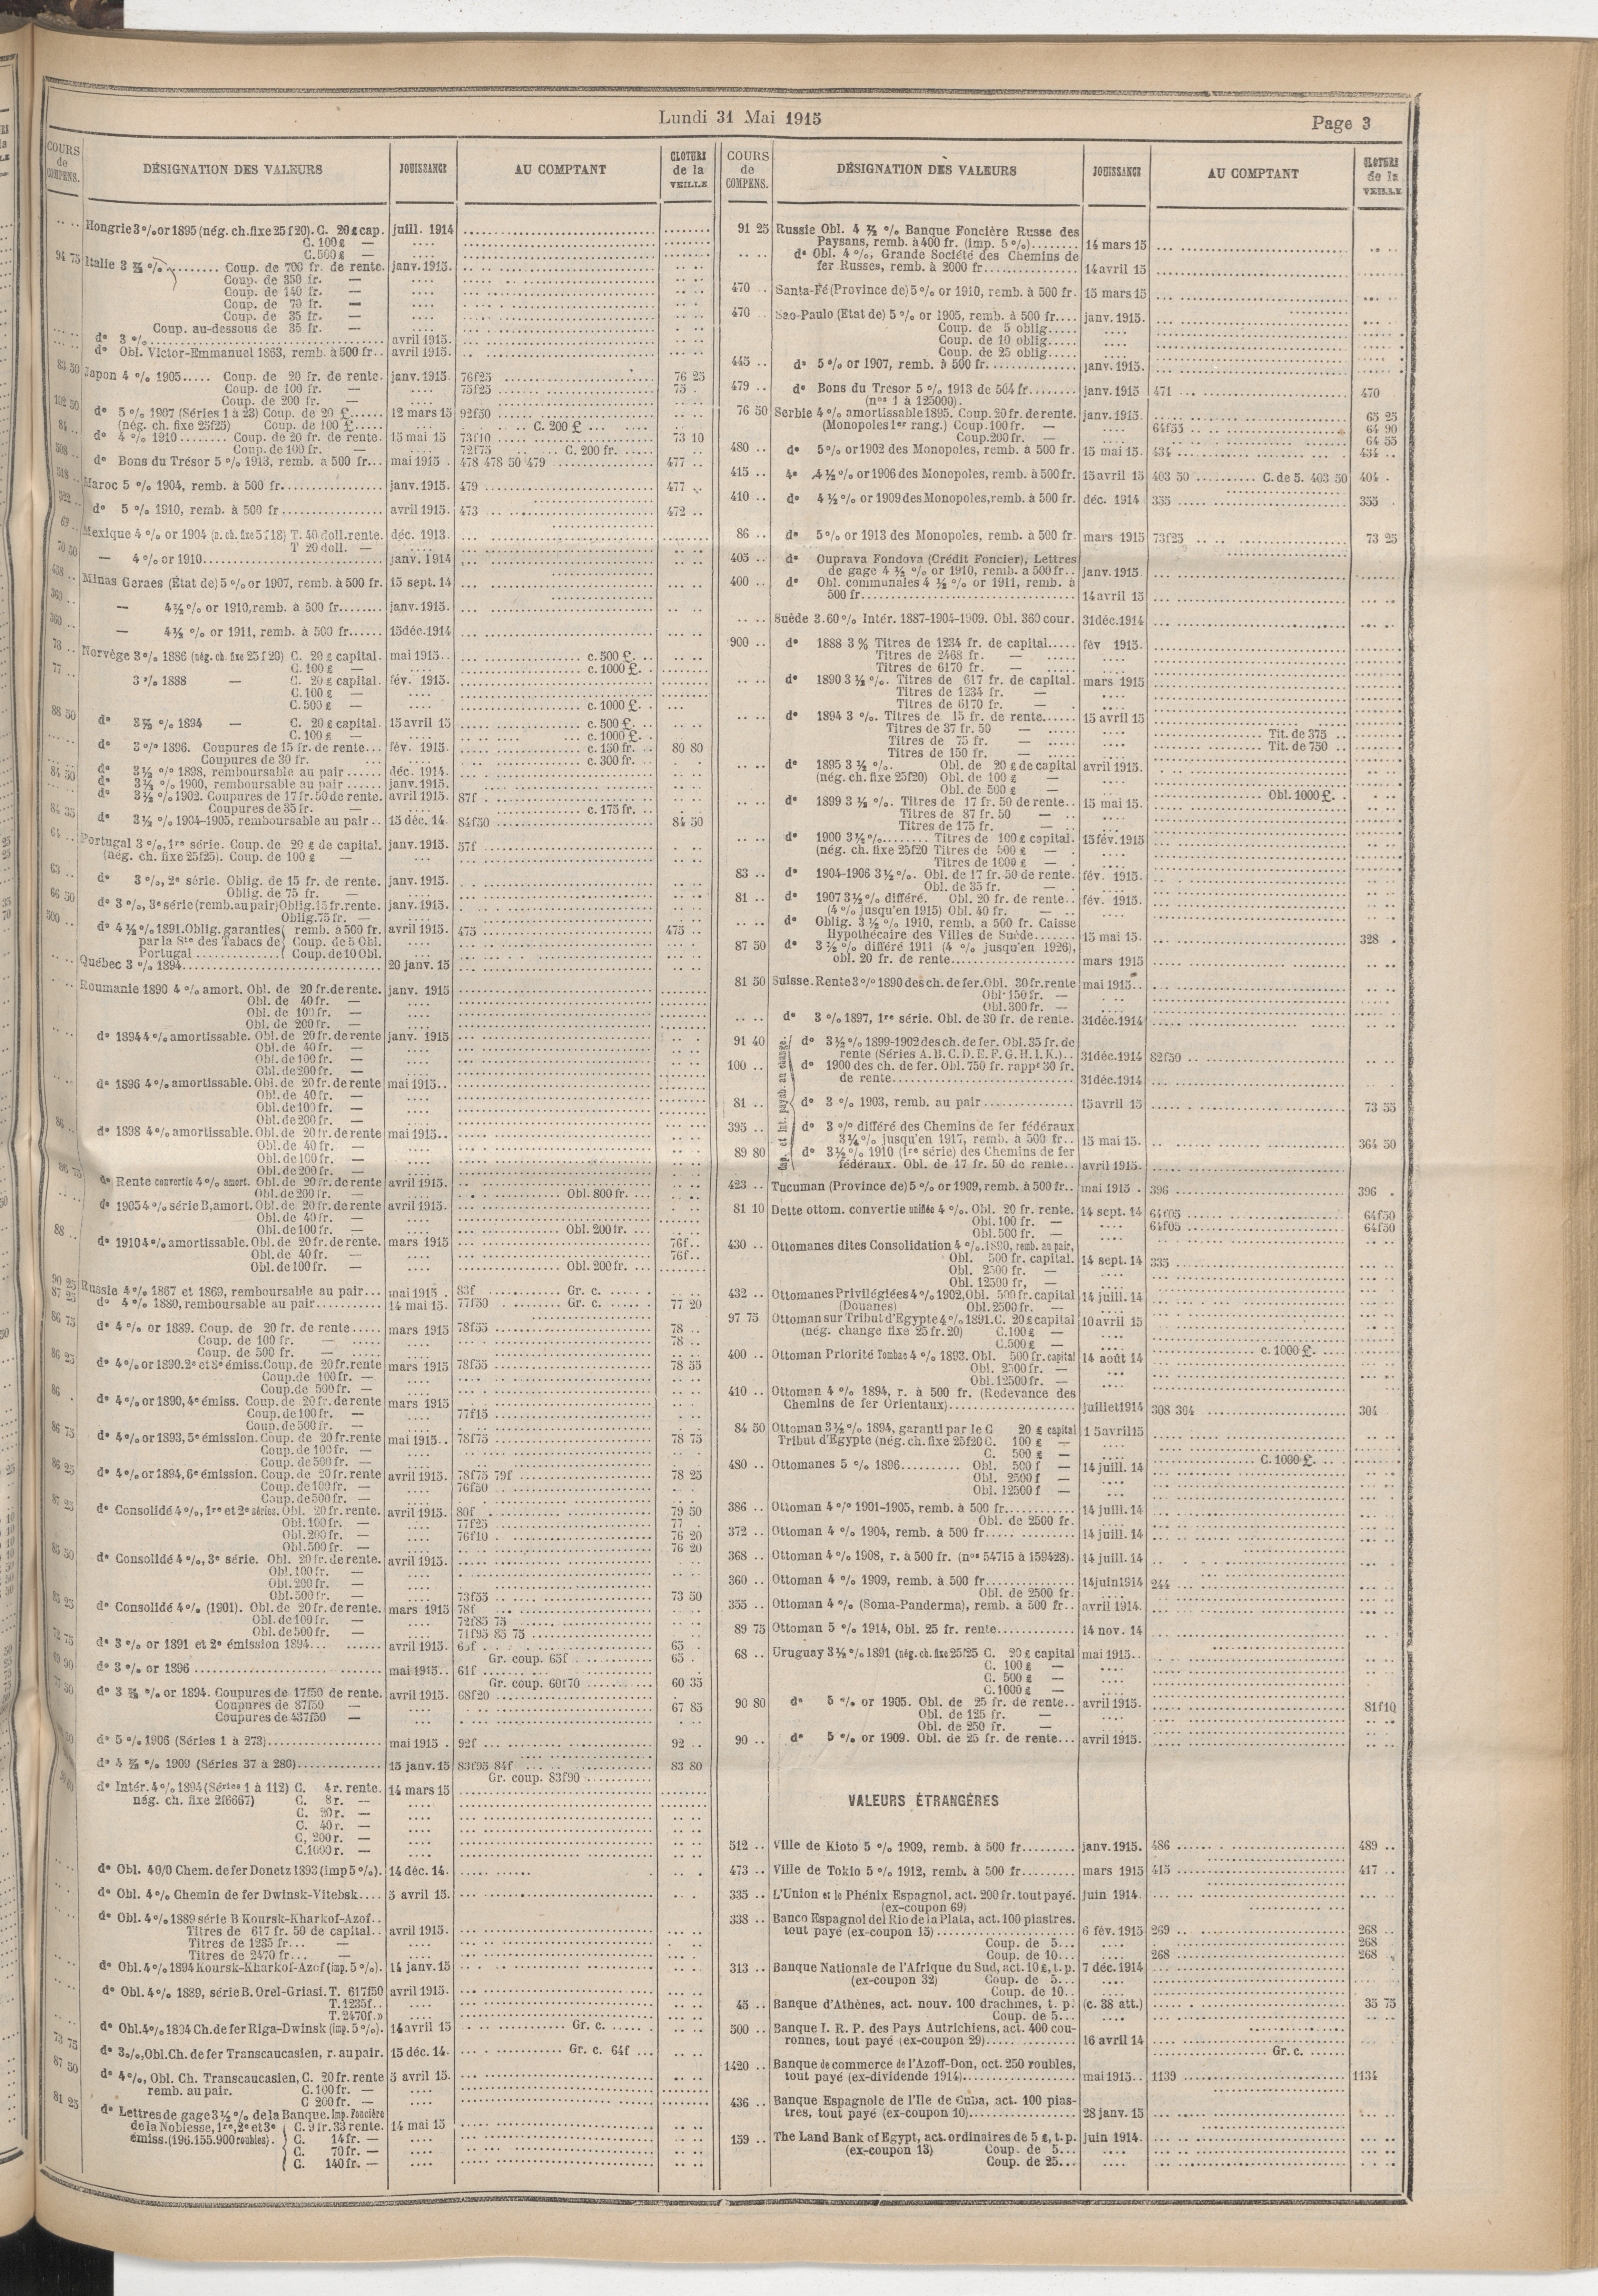 Lundi 31 Mai 1915
Page 3
COURS de COMPENS.
DÉSIGNATION DES VALEURS
JOUISSANCE
AU COMPTANT
CLOTURE de la VEILLE
Hongrie 3 % or 1895 (nég. ch. fixe 25 f 20). C. 20 £ cap. juill. 1914
C. 100 £ —
C. 500 £ —
94 75 Italie 3 ½ % Coup. de 700 fr. de rente. janv. 1915.
Coup. de 350 fr. —
Coup. de 140 fr. —
Coup. de 70 fr. —
Coup. de 35 fr. —
Coup. au-dessous de 35 fr. —
do 3 % avril 1915.
do Obl. Victor-Emmanuel 1863, remb. à 500 fr. avril 1915.
83 50 Japon 4 % 1905 Coup. de 20 fr. de rente. janv. 1915. 76f25 76 25
Coup. de 100 fr. — 75f25 75
Coup. de 200 fr. —
102 50 do 5 % 1907 (Séries 1 à 23) Coup. de 20 £ 12 mars 15 92f50
(nég. ch. fixe 25f25) Coup. de 100 £ C. 200 £
84 do 4 % 1910 Coup. de 20 fr. de rente. 15 mai 15 73f10 73 10
Coup. de 100 fr. — 72f75 C. 200 fr.
508 do Bons du Trésor 5 % 1913, remb. à 500 fr. mai 1915 478 478 50 479 477
518 Maroc 5 % 1904, remb. à 500 fr. janv. 1915. 479 477
522 do 5 % 1910, remb. à 500 fr. avril 1915. 473 472
69 Mexique 4 % or 1904 (n. ch. fixe 5 f 18) T. 40 doll. rente. déc. 1913.
T 20 doll. —
70 50 — 4 % or 1910 janv. 1914
458 Minas Geraes (État de) 5 % or 1907, remb. à 500 fr. 15 sept. 14
360 — 4 ½ % or 1910, remb. à 500 fr. janv. 1915.
360 — 4 ½ % or 1911, remb. à 500 fr. 15 déc. 1914
78 Norvège 3 % 1886 (nég. ch. fixe 25 f 20) C. 20 £ capital. mai 1915. c. 500 £.
C. 100 £ — c. 1000 £.
77 3 % 1888 — C. 20 £ capital. fév. 1915.
C. 100 £ —
C. 500 £ — c. 1000 £.
88 50 do 3 ½ % 1894 — C. 20 £ capital. 15 avril 15 c. 500 £.
C. 100 £ — c. 1000 £.
do 3 % 1896. Coupures de 15 fr. de rente fév. 1915. c. 150 fr. 80 80
Coupures de 30 fr. c. 300 fr.
84 50 do 3 ½ % 1898, remboursable au pair déc. 1914.
do 3 ½ % 1900, remboursable au pair janv. 1915.
do 3 ½ % 1902. Coupures de 17 fr. 50 de rente. avril 1915. 87f
Coupures de 35 fr. — c. 175 fr.
84 35 do 3 ½ % 1904-1905, remboursable au pair 15 déc. 14. 84f50 84 50
64 Portugal 3 %, 1re série. Coup. de 20 £ de capital. janv. 1915. 57f
(nég. ch. fixe 25f25). Coup. de 100 £ —
63 do 3 %, 2e série. Oblig. de 15 fr. de rente. janv. 1915.
Oblig. de 75 fr. —
66 50 do 3 %, 3e série (remb. au pair) Oblig. 15 fr. rente. janv. 1915.
Oblig. 75 fr. —
500 do 4 ½ % 1891. Oblig. garanties remb. à 500 fr. avril 1915. 475 475
par la Ste des Tabacs de Coup. de 5 Obl.
Portugal Coup. de 10 Obl.
Québec 3 % 1894 20 janv. 15
Roumanie 1890 4 % amort. Obl. de 20 fr. de rente. janv. 1915
Obl. de 40 fr. —
Obl. de 100 fr. —
Obl. de 200 fr. —
do 1894 4 % amortissable. Obl. de 20 fr. de rente janv. 1915
Obl. de 40 fr. —
Obl. de 100 fr. —
Obl. de 200 fr. —
do 1896 4 % amortissable. Obl. de 20 fr. de rente mai 1915.
Obl. de 40 fr. —
Obl. de 100 fr. —
Obl. de 200 fr. —
86 do 1898 4 % amortissable. Obl. de 20 fr. de rente mai 1915.
Obl. de 40 fr. —
Obl. de 100 fr. —
Obl. de 200 fr. —
86 75 do Rente convertie 4 % amort. Obl. de 20 fr. de rente avril 1915.
Obl. de 200 fr. — Obl. 800 fr.
do 1905 4 % série B, amort. Obl. de 20 fr. de rente avril 1915.
Obl. de 40 fr. —
88 Obl. de 100 fr. — Obl. 200 fr.
do 1910 4 % amortissable. Obl. de 20 fr. de rente. mars 1915 76f
Obl. de 40 fr. — 76f
Obl. de 100 fr. — Obl. 200 fr.
90 25 Russie 4 % 1867 et 1869, remboursable au pair mai 1915 83f Gr. c.
87 25 do 4 % 1880, remboursable au pair 14 mai 15 77f50 Gr. c. 77 20
86 75 do 4 % or 1889. Coup. de 20 fr. de rente mars 1915 78f55 78
Coup. de 100 fr. — 78
Coup. de 500 fr. —
86 25 do 4 % or 1890. 2e et 3e émiss. Coup. de 20 fr. rente mars 1915 78f55 78 55
Coup. de 100 fr. —
Coup. de 500 fr. —
86 do 4 % or 1890, 4e émiss. Coup. de 20 fr. de rente mars 1915
Coup. de 100 fr. — 77f15
Coup. de 500 fr. —
86 75 do 4 % or 1893, 5e émission. Coup. de 20 fr. rente mai 1915. 78f75 78 75
Coup. de 100 fr. —
Coup. de 500 fr. —
86 25 do 4 % or 1894, 6e émission. Coup. de 20 fr. rente avril 1915. 78f75 79f 78 25
Coup. de 100 fr. — 76f50
Coup. de 500 fr. —
87 25 do Consolidé 4 %, 1re et 2e séries. Obl. 20 fr. rente. avril 1915. 80f 79 50
Obl. 100 fr. — 77f25 77
Obl. 200 fr. — 76f10 76 20
Obl. 500 fr. — 76 20
85 50 do Consolidé 4 %, 3e série. Obl. 20 fr. de rente. avril 1915.
Obl. 100 fr. —
Obl. 200 fr. —
Obl. 500 fr. — 73f55 73 50
85 25 do Consolidé 4 % (1901). Obl. de 20 fr. de rente. mars 1915 78f
Obl. de 100 fr. — 72f85 75
Obl. de 500 fr. — 71f95 85 75
72 75 do 3 % or 1891 et 2e émission 1894 avril 1915. 65f 65
Gr. coup. 65f 65
do 3 % or 1896 mai 1915. 61f
Gr. coup. 60f70 60 35
do 3 ½ % or 1894. Coupures de 17f50 de rente. avril 1915. 68f20
Coupures de 87f50 — 67 85
Coupures de 437f50 —
do 5 % 1906 (Séries 1 à 273) mai 1915 92f 92
do 4 ½ % 1909 (Séries 37 à 286) 15 janv. 15 83f95 84f 83 80
Gr. coup. 83f90
do Intér. 4 % 1894 (Séries 1 à 112) C. 4 r. rente. 14 mars 15
nég. ch. fixe 2f6667) C. 8 r. —
C. 20 r. —
C. 40 r. —
C. 200 r. —
C. 1000 r. —
do Obl. 40/0 Chem. de fer Donetz 1893 (imp 5 %). 14 déc. 14.
do Obl. 4 % Chemin de fer Dwinsk-Vitebsk 5 avril 15.
do Obl. 4 % 1889 série B Koursk-Kharkof-Azof
Titres de 617 fr. 50 de capital avril 1915.
Titres de 1235 fr. —
Titres de 2470 fr. —
do Obl. 4 % 1894 Koursk-Kharkof-Azof (imp. 5 %). 14 janv. 15
do Obl. 4 % 1889, série B. Orel-Griasi. T. 617f50 avril 1915.
T. 1235f
T. 2470f.»
73 75 do Obl. 4 % 1894 Ch. de fer Riga-Dwinsk (imp. 5 %). 14 avril 15 Gr. c.
do 3 %, Obl. Ch. de fer Transcaucasien, r. au pair. 15 déc. 14. Gr. c. 64f
87 50 do 4 %, Obl. Ch. Transcaucasien, C. 20 fr. rente 5 avril 15.
remb. au pair. C. 100 fr. —
C 200 fr. —
81 25 do Lettres de gage 3 ½ % de la Banque. Imp. Foncière
de la Noblesse, 1re, 2e et 3e C. 9 fr. 33 rente. 14 mai 15
émiss. (196.155.900 roubles). C. 14 fr. —
C. 70 fr. —
C. 140 fr. —
COURS de COMPENS.
DÉSIGNATION DES VALEURS
JOUISSANCE
AU COMPTANT
CLOTURE de la VEILLE
91 25 Russie Obl. 4 ½ % Banque Foncière Russe des
Paysans, remb. à 400 fr. (imp. 5 %) 14 mars 15
do Obl. 4 %, Grande Société des Chemins de
fer Russes, remb. à 2000 fr. 14 avril 15
470 Santa-Fé (Province de) 5 % or 1910, remb. à 500 fr. 15 mars 15
470 Sao-Paulo (Etat de) 5 % or 1905, remb. à 500 fr. janv. 1915.
Coup. de 5 oblig.
Coup. de 10 oblig.
Coup. de 25 oblig.
445 do 5 % or 1907, remb. à 500 fr. janv. 1915.
479 do Bons du Tresor 5 % 1913 de 504 fr. janv. 1915 471 470
(nos 1 à 125000).
76 50 Serbie 4 % amortissable 1895. Coup. 20 fr. de rente. janv. 1915. 65 25
(Monopoles 1er rang.) Coup. 100 fr. — 64f55 64 90
Coup. 200 fr. — 64 55
480 do 5 % or 1902 des Monopoles, remb. à 500 fr. 15 mai 15. 434 434
415 do 4 ½ % or 1906 des Monopoles, remb. à 500 fr. 15 avril 15 403 50 C. de 5. 403 50 404
410 do 4 ½ % or 1909 des Monopoles, remb. à 500 fr. déc. 1914 355 355
86 do 5 % or 1913 des Monopoles, remb. à 500 fr. mars 1915 73f25 73 25
405 do Ouprava Fondova (Crédit Foncier), Lettres
de gage 4 ½ % or 1910, remb. à 500 fr. janv. 1915
400 do Obl. communales 4 ½ % or 1911, remb. à
500 fr. 14 avril 15
Suède 3.60 % Intér. 1887-1904-1909. Obl. 360 cour. 31 déc. 1914
900 do 1888 3 % Titres de 1234 fr. de capital fév 1915.
Titres de 2468 fr. —
Titres de 6170 fr. —
do 1890 3 ½ %. Titres de 617 fr. de capital. mars 1915
Titres de 1234 fr. —
Titres de 6170 fr. —
do 1894 3 %. Titres de 15 fr. de rente 15 avril 15
Titres de 37 fr. 50 — Tit. de 375
Titres de 75 fr. — Tit. de 750
Titres de 150 fr. —
do 1895 3 ½ %. Obl. de 20 £ de capital avril 1915.
(nég. ch. fixe 25f20) Obl. de 100 £ —
Obl. de 500 £ — Obl. 1000 £.
do 1899 3 ½ %. Titres de 17 fr. 50 de rente 15 mai 15.
Titres de 87 fr. 50 —
Titres de 175 fr. —
do 1900 3 ½ % Titres de 100 £ capital. 15 fév. 1915
(nég. ch. fixe 25f20 Titres de 500 £ —
Titres de 1000 £ —
83 do 1904-1906 3 ½ %. Obl. de 17 fr. 50 de rente. fév. 1915.
Obl. de 35 fr. —
81 do 1907 3 ½ % différé. Obl. 20 fr. de rente fév. 1915.
(4 % jusqu'en 1915) Obl. 40 fr. —
do Oblig. 3 ½ % 1910, remb. a 500 fr. Caisse
Hypothécaire des Villes de Suède 15 mai 15. 328
87 50 do 3 ½ % différé 1911 (4 % jusqu'en 1926),
obl. 20 fr. de rente mars 1915
81 50 Suisse. Rente 3 % 1890 des ch. de fer. Obl. 30 fr. rente mai 1915.
Obl. 150 fr. —
Obl. 300 fr. —
do 3 % 1897, 1re série. Obl. de 30 fr. de rente. 31 déc. 1914
payab. au change
91 40 do 3 ½ % 1899-1902 des ch. de fer. Obl. 35 fr. de
rente (Séries A. B. C. D. E. F. G. H. I. K.) 31 déc. 1914 82f50
100 do 1900 des ch. de fer. Obl. 750 fr. rappt 30 fr.
de rente 31 déc. 1914
81 do 3 % 1903, remb. au pair 15 avril 15 73 55
395 do 3 % différé des Chemins de fer fédéraux
3 ¼ % jusqu'en 1917, remb. à 500 fr. 15 mai 15. 364 50
89 80 do 3 ½ % 1910 (1re série) des Chemins de fer
fédéraux. Obl. de 17 fr. 50 de rente avril 1915.
423 Tucuman (Province de) 5 % or 1909, remb. à 500 fr. mai 1915 396 396
81 10 Dette ottom. convertie unifiée 4 %. Obl. 20 fr. rente. 14 sept. 14 64f05 64f50
Obl. 100 fr. — 64f05 64f50
Obl. 500 fr. —
430 Ottomanes dites Consolidation 4 %. 1890, remb. au pair,
Obl. 500 fr. capital. 14 sept. 14 335
Obl. 2500 fr. —
Obl. 12500 fr, —
432 Ottomanes Privilégiées 4 % 1902, Obl. 500 fr. capital 14 juill. 14
(Douanes) Obl. 2500 fr. —
97 75 Ottoman sur Tribut d'Egypte 4 % 1891. C. 20 £ capital 10 avril 15
(nég. change fixe 25 fr. 20) C. 100 £ —
C. 500 £ — c. 1000 £.
400 Ottoman Priorité Tombac 4 % 1893. Obl. 500 fr. capital 14 août 14
Obl. 2500 fr. —
Obl. 12500 fr. —
410 Ottoman 4 % 1894, r. à 500 fr. (Redevance des
Chemins de fer Orientaux) juillet 1914 308 304 304
84 50 Ottoman 3 ½ % 1894, garanti par le C 20 £ capital 15 avril 15
Tribut d'Égypte (nég. ch. fixe 25f20 C. 100 £ —
C. 500 £ — C. 1000 £.
480 Ottomanes 5 % 1896 Obl. 500 f — 14 juill. 14
Obl. 2500 f —
Obl. 12500 f —
386 Ottoman 4 % 1901-1905, remb. à 500 fr. 14 juill. 14
Obl. de 2500 fr.
372 Ottoman 4 % 1904, remb. à 500 fr. 14 juill. 14
368 Ottoman 4 % 1908, r. à 500 fr. (nos 54715 à 159428). 14 juill. 14
360 Ottoman 4 % 1909, remb. à 500 fr. 14 juin 1914 244
Obl. de 2500 fr.
355 Ottoman 4 % (Soma-Panderma), remb. à 500 fr. avril 1914.
89 75 Ottoman 5 % 1914, Obl. 25 fr. rente 14 nov. 14
68 Uruguay 3 ½ % 1891 (nég. ch. fixe 25f25 C. 20 £ capital mai 1915.
C. 100 £ —
C. 500 £ —
C. 1000 £ —
90 80 do 5 % or 1905. Obl. de 25 fr. de rente avril 1915. 81f10
Obl. de 125 fr. —
Obl. de 250 fr. —
90 do 5 % or 1909. Obl. de 25 fr. de rente avril 1915.
VALEURS ÉTRANGÉRES
512 Ville de Kioto 5 % 1909, remb. à 500 fr. janv. 1915. 486 489
473 Ville de Tokio 5 % 1912, remb. à 500 fr. mars 1915 415 417
335 L'Union et le Phénix Espagnol, act. 200 fr. tout payé. juin 1914.
(ex-coupon 69)
338 Banco Espagnol del Rio de la Plata, act. 100 piastres.
tout payé (ex-coupon 15) 6 fév. 1915 269 268
Coup. de 5 268
Coup. de 10 268 268
313 Banque Nationale de l'Afrique du Sud, act. 10 £, t. p. 7 déc. 1914
(ex-coupon 32) Coup. de 5
Coup. de 10
45 Banque d'Athènes, act. nouv. 100 drachmes, t. p. (c. 38 att.) 35 75
Coup. de 5
500 Banque I. R. P. des Pays Autrichiens, act. 400 cou-
ronnes, tout payé (ex-coupon 29) 16 avril 14
Gr. c.
1420 Banque de commerce de l'Azoff-Don, oct. 250 roubles,
tout payé (ex-dividende 1914) mai 1915 1139 1134
436 Banque Espagnole de l'Ile de Cuba, act. 100 pias-
tres, tout payé (ex-coupon 10) 28 janv. 15
159 The Land Bank of Egypt, act. ordinaires de 5 £, t. p. juin 1914.
(ex-coupon 13) Coup. de 5
Coup. de 25